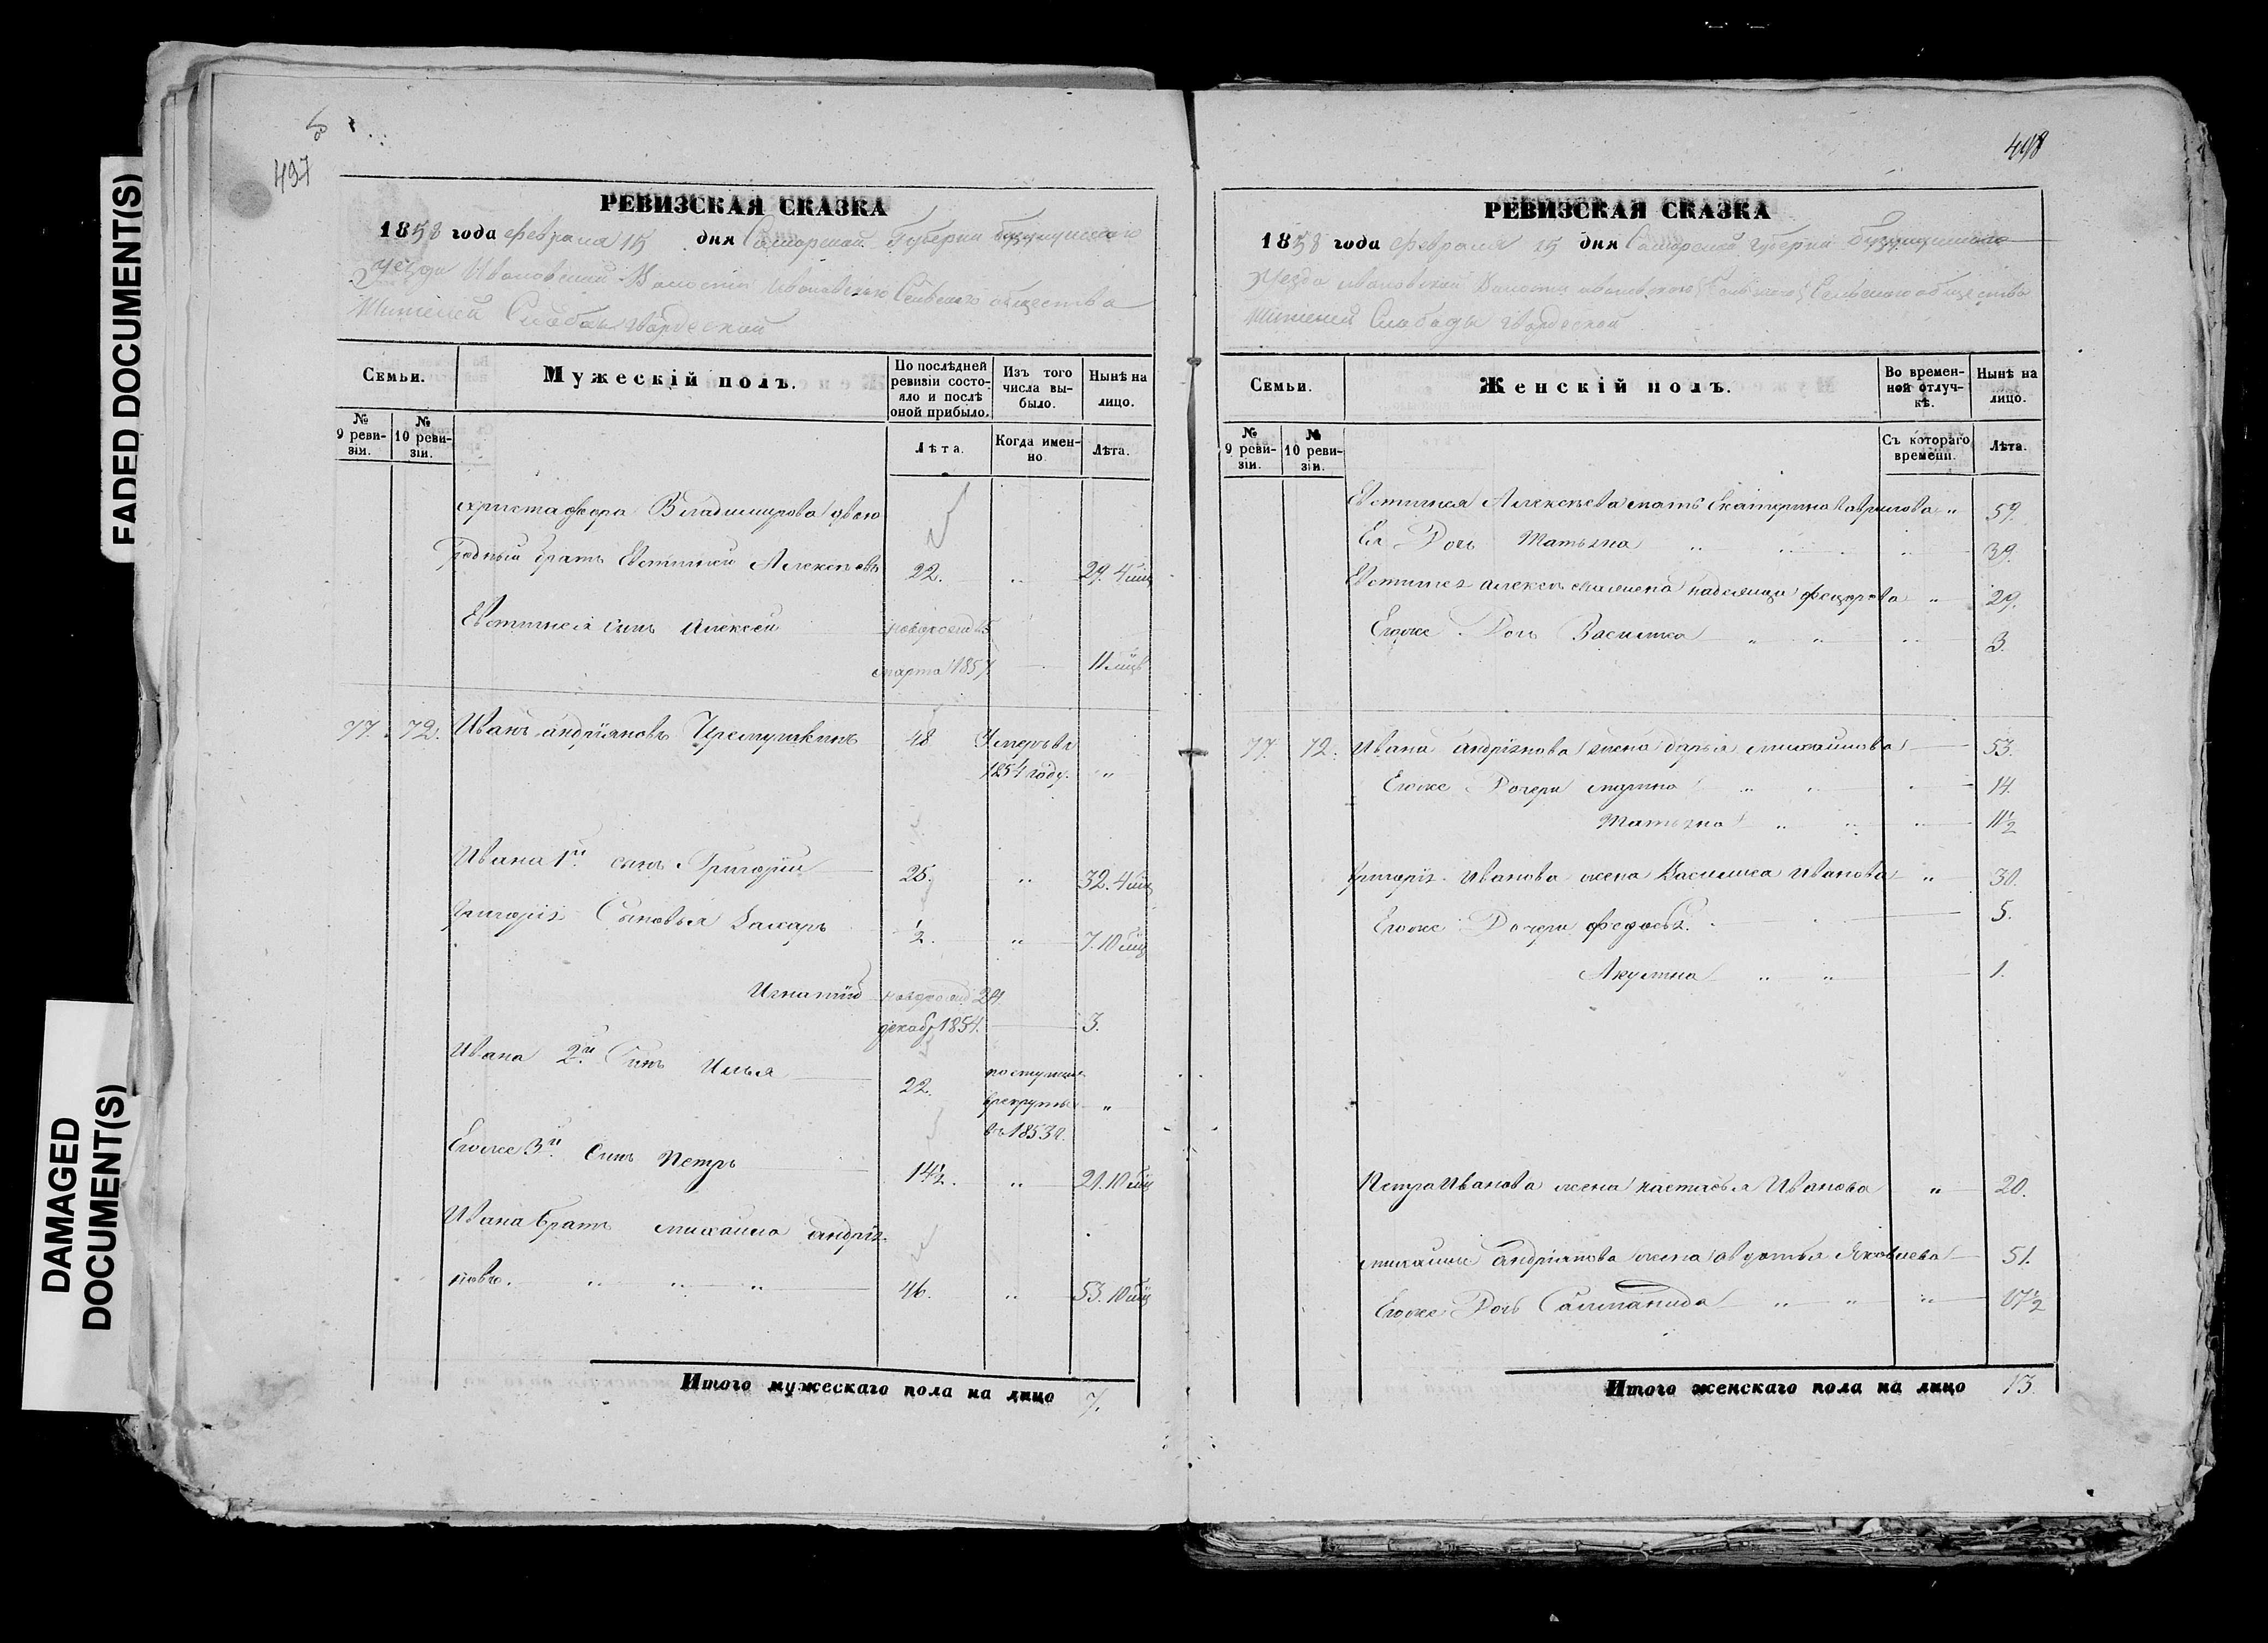 FADED DOCUMENT(S)
DAMAGED
DOCUMENT(S)
497
РЕВИЗСКАЯ СКАЗКА
1858 года февраля 15 дня Самарской Губерни бузулуцкаго
уезда Ивановской Волости Ивановского Сельского общества
Жителей Слабоды Гвардеской
Семьи.
Мужескій полъ.
По послѣдней ревизіи состояло и послѣ оной прибыло.
Изъ того числа выбыло.
Нынѣ на лицо.
№ 9 ревизіи.
№ 10 ревизіи.
Лѣта.
Когда именно.
Лѣта.
христафора Владимирова двою
родный братъ Евстигней Алексеевъ 22. „ 29. 4 мц
Евстигнея сынъ Алексей
марта 1857. 11 мцв
77. 72. Иванъ андріяновъ Черемушкинъ 48 Умеръ въ
1854 году. „
Ивана 1й сынъ Григорій 25. „ 32. 4 мц
Григорія Сыновья Захаръ 1/2. „ 7. 10 мц
Игнатій 24
декабр 1854. 3.
Ивана 2й Сынъ Илья 22. поступил
врекруты „
въ 1853 г.
Егоже 3й Сынъ Петръ 14 1/2. „ 21. 10 мц
Ивана братъ михаила андрія
новъ. „ „ „ 46. „ 53. 10 мц
Итого мужескаго пола на лицо 7.
498
РЕВИЗСКАЯ СКАЗКА
1858 года февраля 15 дня Самарской губерни бузулуцкаго
уезда ивановской Волости Сельского общества
Жителей Слабоды гвардеской
Семьи.
Женскій полъ.
Во временной отлучкѣ.
Нынѣ на лицо.
№ 9 ревизіи.
№ 10 ревизіи.
Съ котораго времени.
Лѣта.
Евстигнея Алексеева мать Екатерина Гаврилова „ 59.
Ея Дочь Татьяна „ 39.
Евстигнея алексеева жена надежда федорова „ 29.
Егоже Дочь Василиса „ „ „ 3.
77. 72. Ивана андріянова жена дарья михайлова 53.
Егоже Дочери марина „ 14.
Татьяна „ „ „ 11 1/2
Григорія Иванова жена Василиса Иванова „ 30.
Егоже Дочери федосья. 5.
Акулина „ „ 1.
Петра Иванова жена настасья Иванова „ 20.
михаилы андріянова жена авдотья Яковлева 51.
Егоже Дочь Саломанида „ „ „ 17 1/2
Итого женскаго пола на лицо 13.